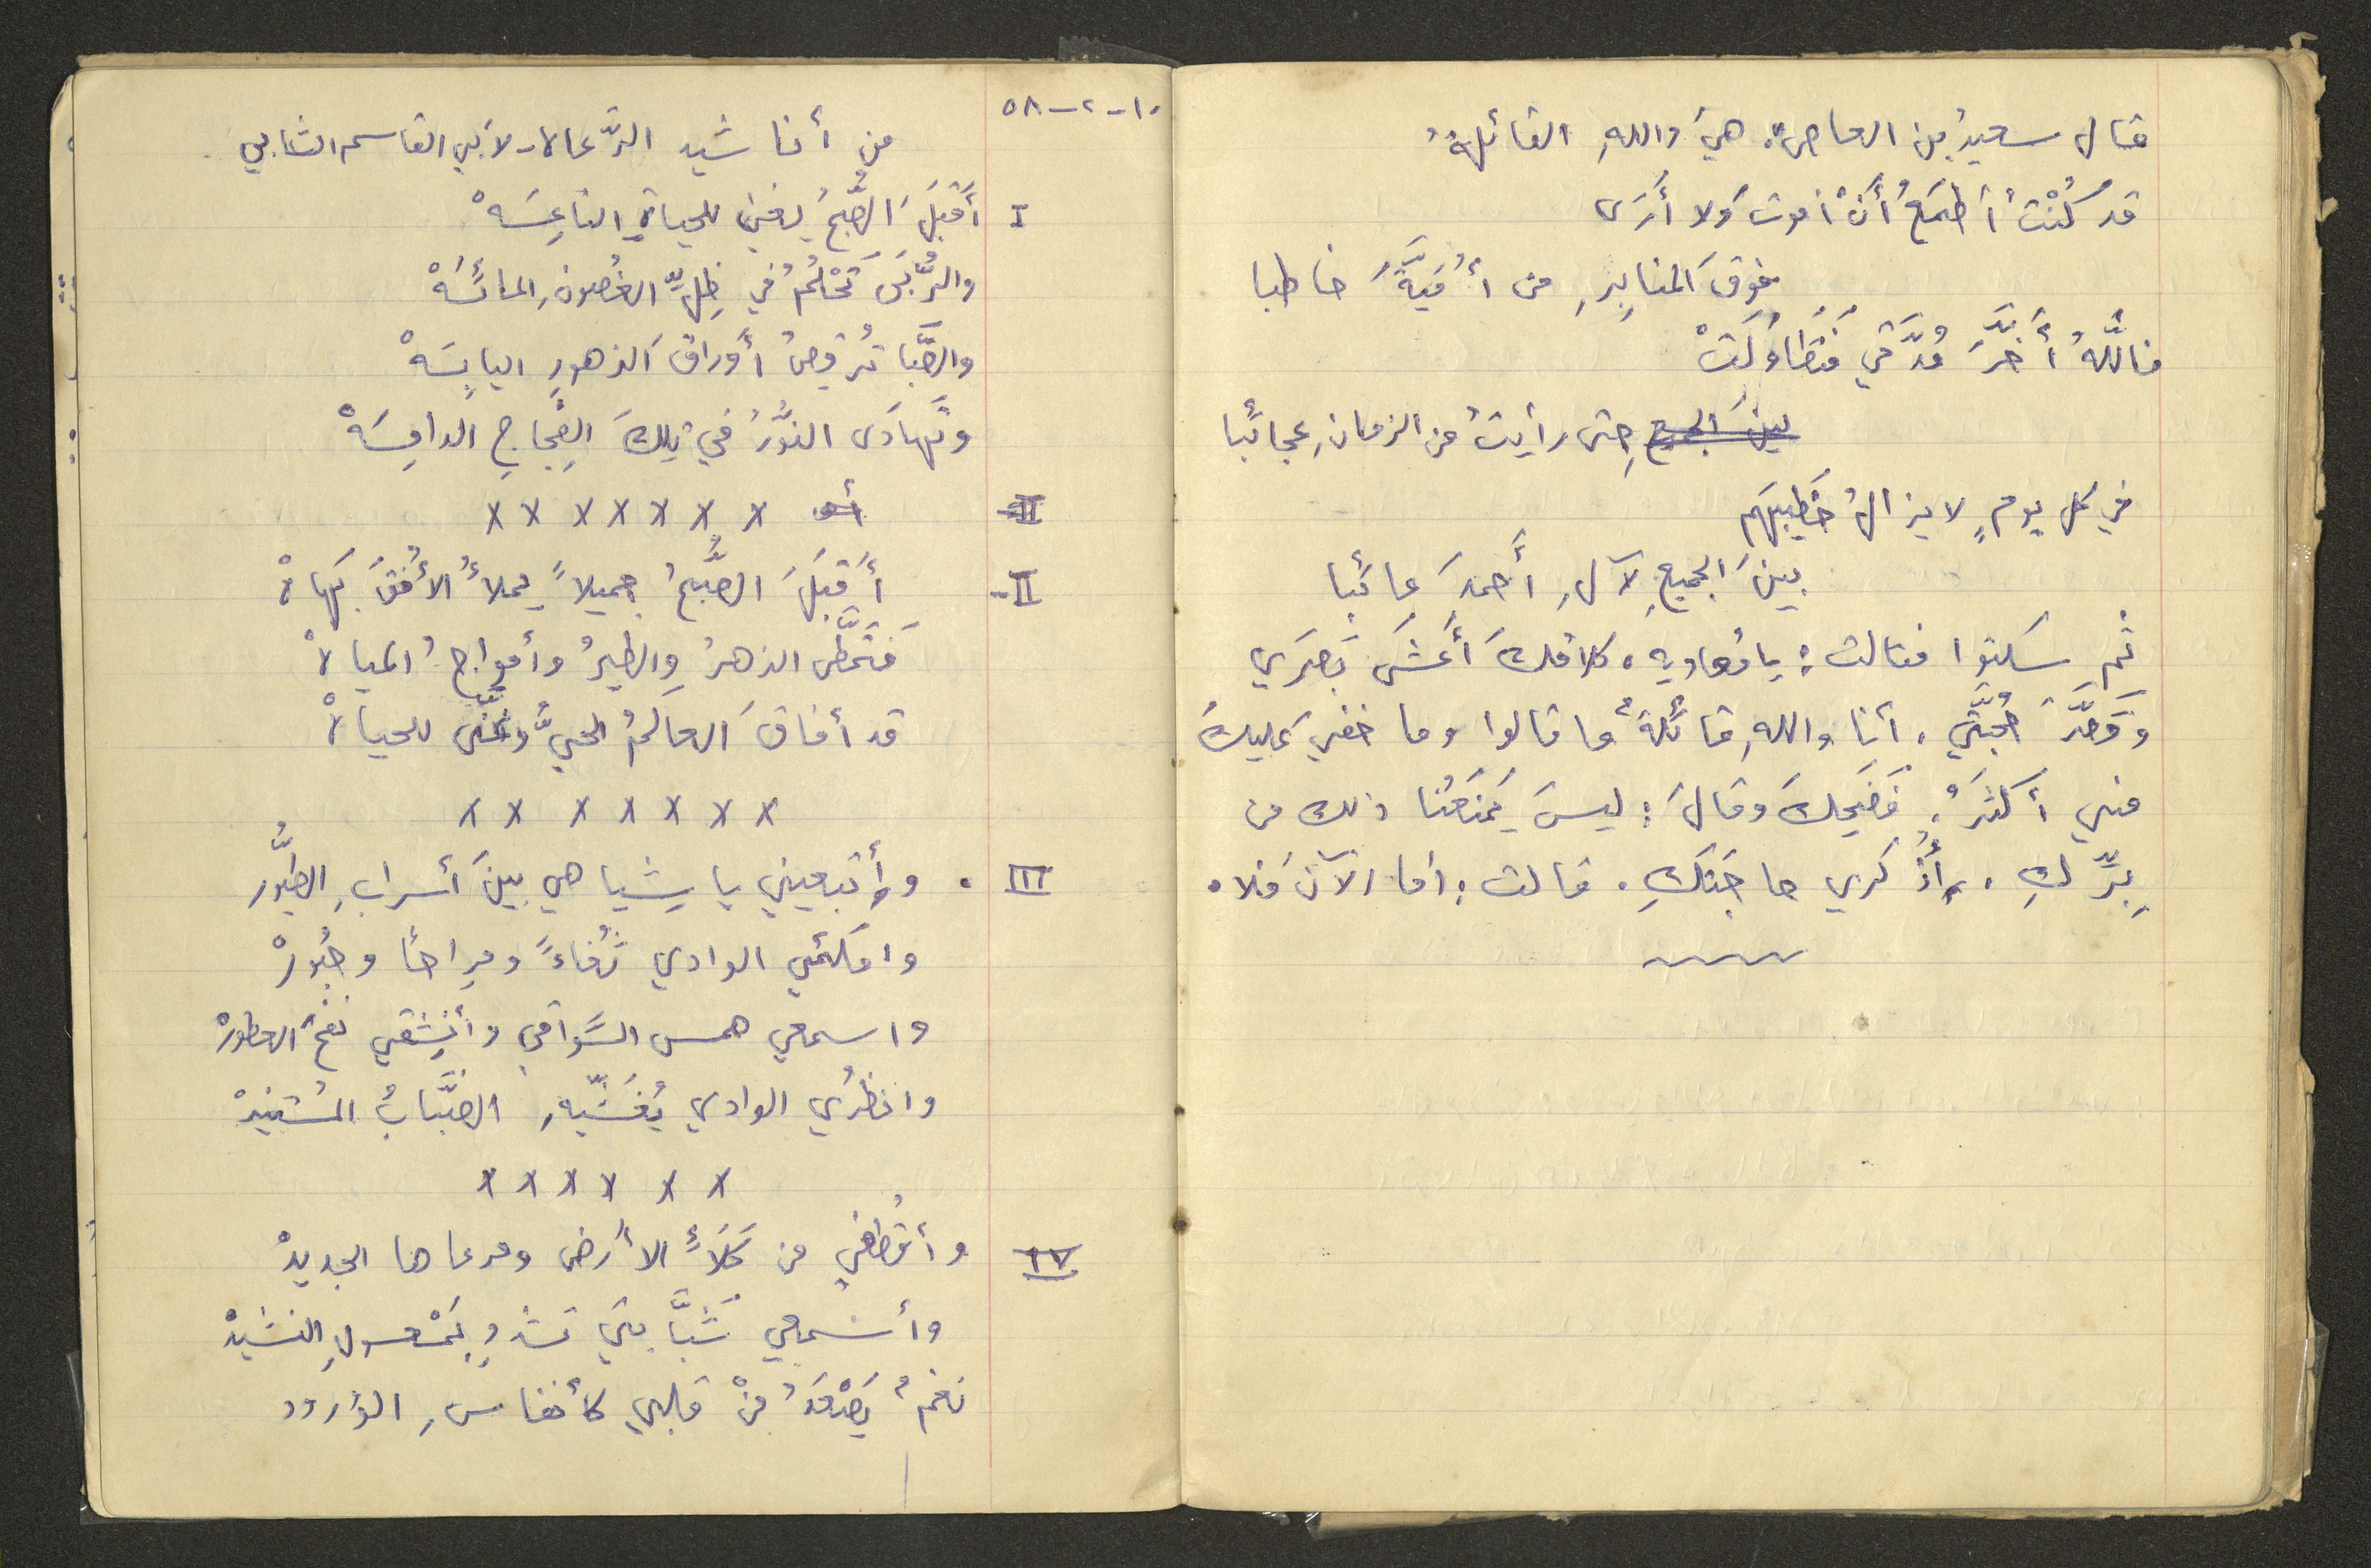 قال سعيدُ بن العاص: هيَ واللهِ القائلةُ
قد كُنْتُ أطمَعُ أَنْ أموتَ ولا أَرَى
فوقَ المنابِرِ من أُمَيَّةَ خاطبا
فاللهُ أَخَّرَ مُدَّتي فتَطاوَلَتْ
بينَ الجميع حتى رأيتُ من الزمانِ عجائبا
في كل يومٍ لا يزالُ خَطيبَهم
بينَ الجميعِ لآلِ أَحمدَ عائبا
ثم سكتوا فقالت: يا معاويه، كلامُك أَعْشَى بَصَري
وَقصَّرَ حُجَّتي، أنا واللهِ قائلةٌ ما قالوا وما خفيَ عليكَ
مني أكثَرُ، فَضَحِكَ وقالَ: ليسَ يَمْنَعُنا ذلك من
بِرِّكِ. أُذْكُري حاجَتَكِ. قالت: أما الآنَ فلا.
١٠-٢-٥٨
من أناشيد الرَّعاة - لأبي القاسم الشابي
I أَقْبَلَ الصُّبحُ يغني للحياةِ الناعِسَهْ
والرُّبَى تَحْلُمُ في ظِلِّ الغُصونِ المائسَهْ
والصَّبا تُرقِصُ أَوراقَ الزهورِ اليابِسَهْ
وتَهادَى النُّورُ في تِلكَ الفِجاجِ الدامِسَهْ
II أق x x x x x x x
II- أَقْبَلَ الصُّبحُ جميلاً يملأُ الأُفقَ بَهاهْ
فَتَمَطَّى الزهرُ والطيرُ وأمواجُ المياهْ
قد أفاقَ العالمُ الحيُّ وغنَّى للحياهْ
x x x x x x x
III وأتبعيني يا شِياهي بينَ أسرابِ الطيُور
واملئي الوادي ثُغاءً ومِراحًا وحُبُورْ
واسمعي همس السَّواقي وأنشِقي نفحَ العطورْ
وانظُري الوادي يُغَشِّيهِ الضَّبابُ المُستنيرْ
x x x x x x
IV وأقطُفي من كَلأِ الأرض ومرعاها الجديدْ
وأسمعي شَبَّابتي تشدو بِمَعْسولِ النشيدْ
نغمٌ يَصْعَدُ منْ قلبي كأنفاسِ الوُرود